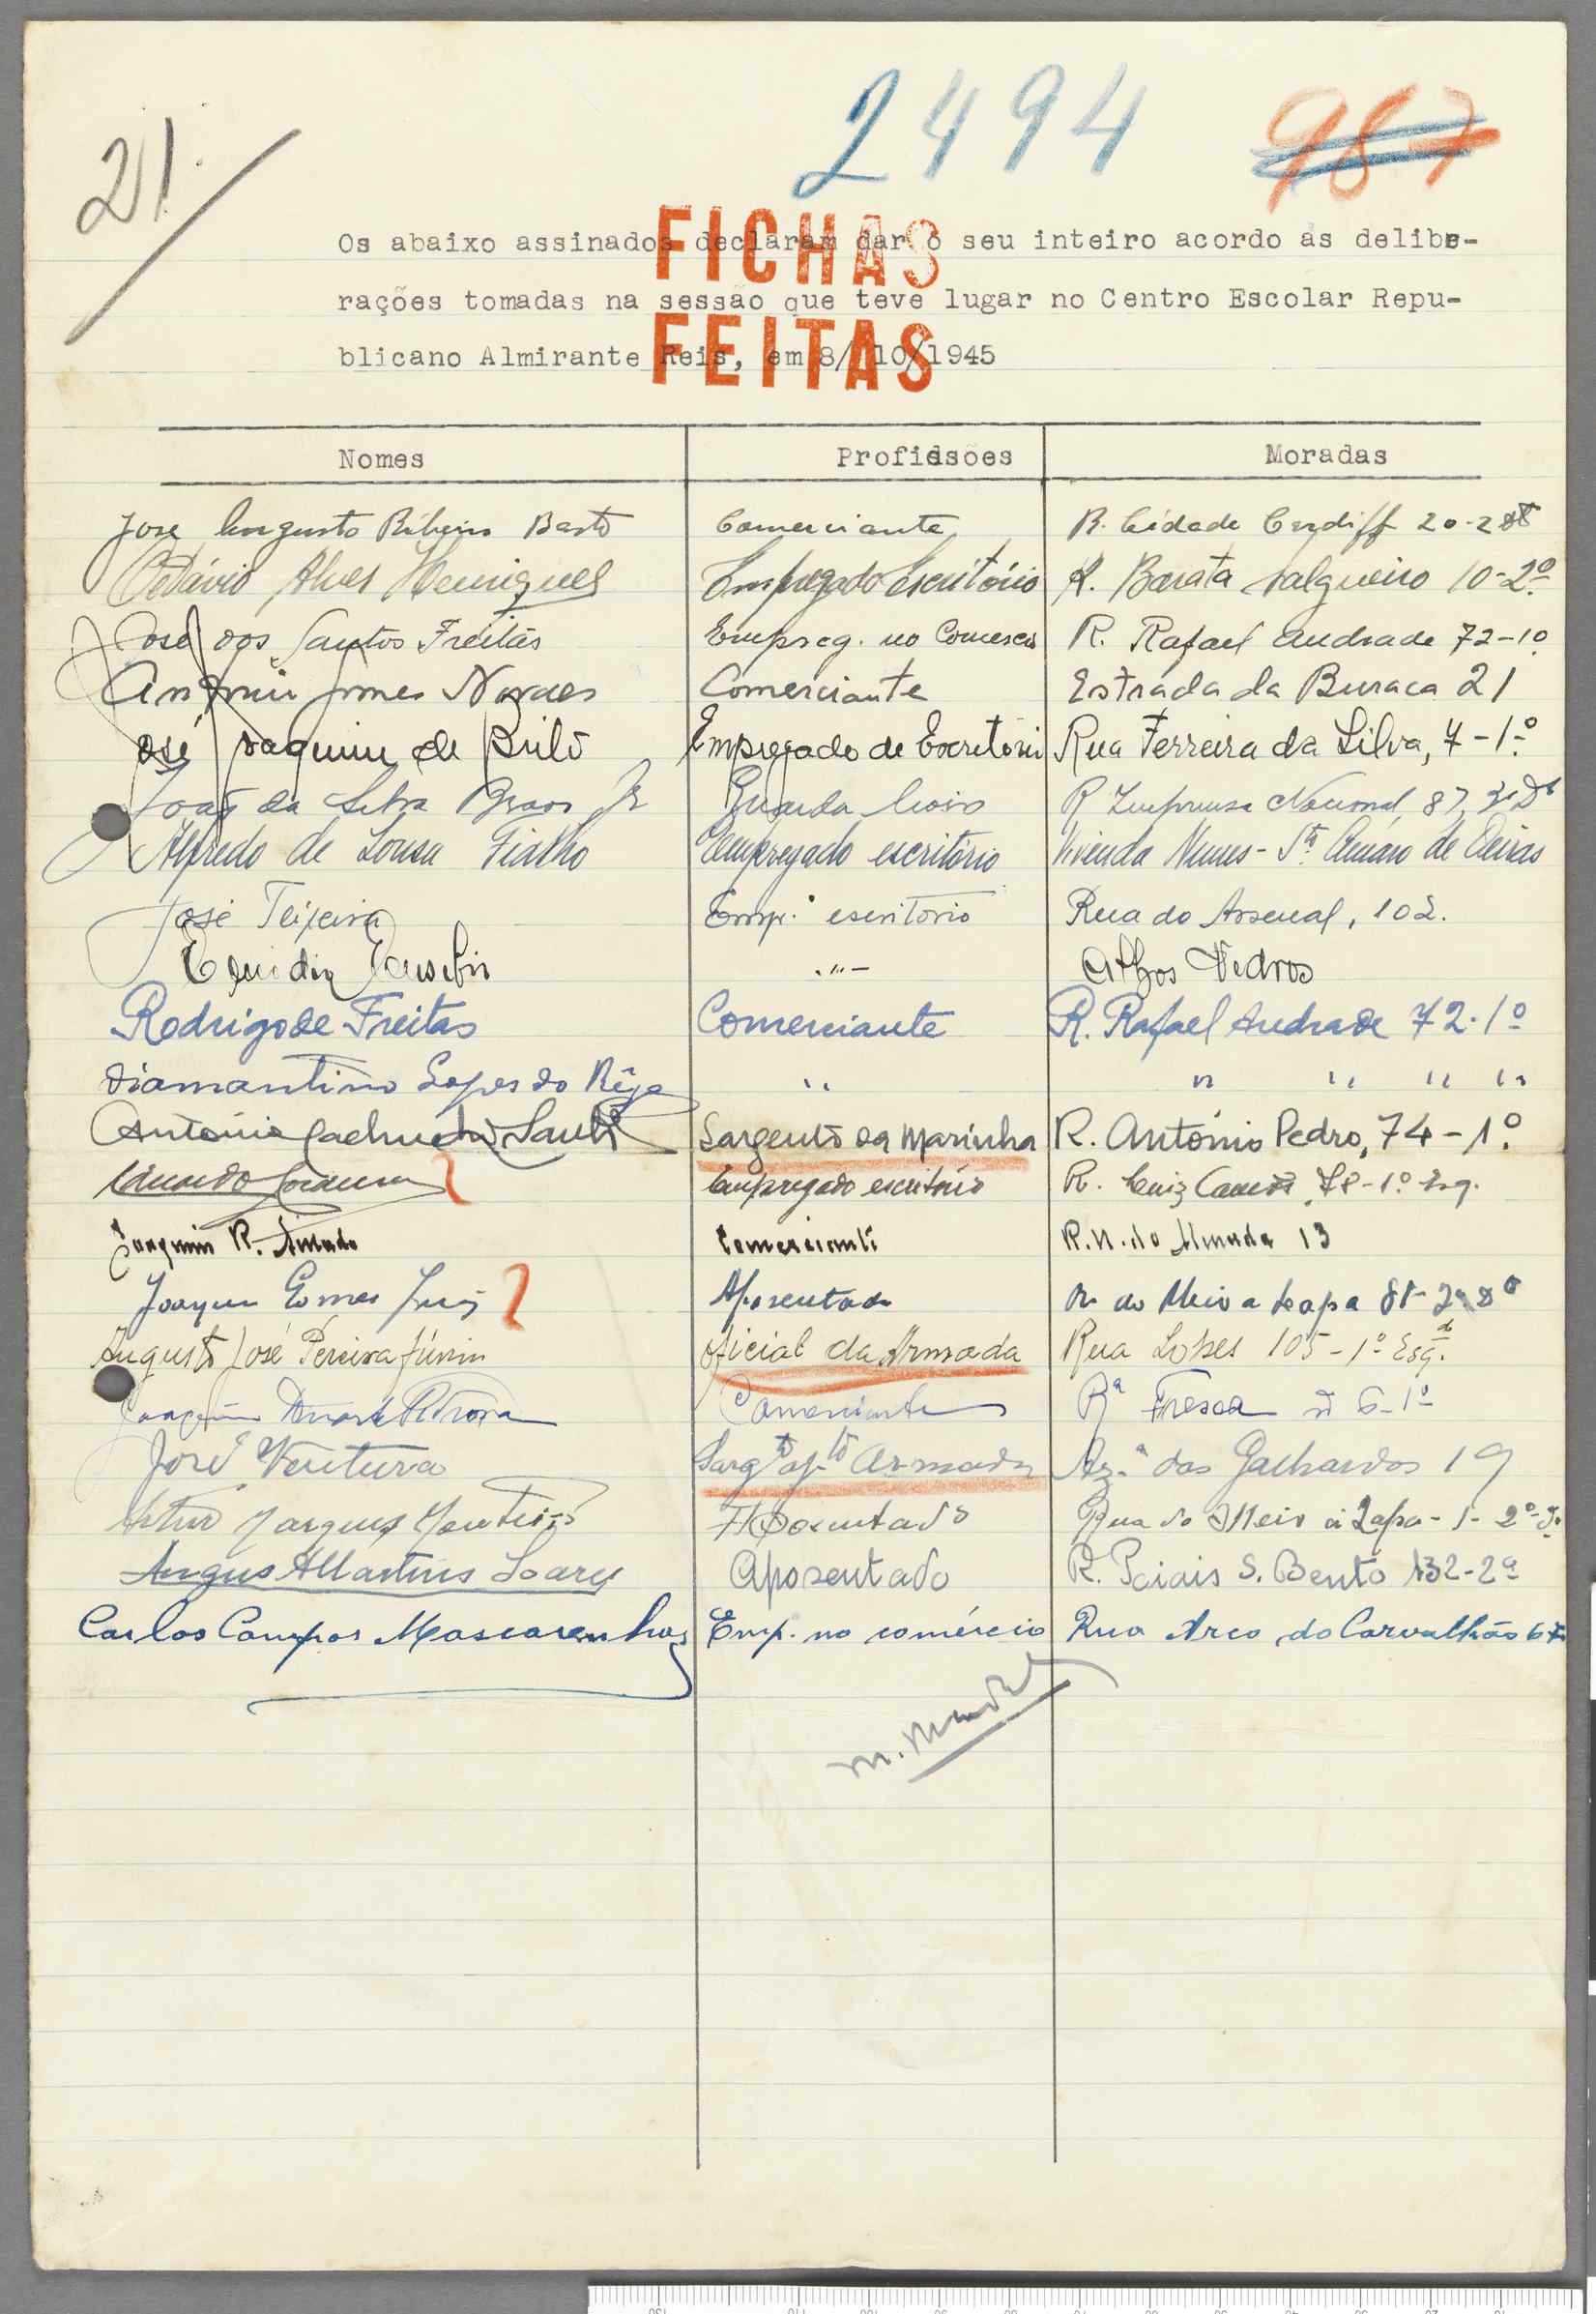 2494
987
21.
FICHAS
FEITAS
Os abaixo assinados declaram dar o seu inteiro acordo ás delibe-
rações tomadas na sessão que teve lugar no Centro Escolar Repu-
blicano Almirante Reis, em 8/ 10/1945
Nomes Profissões Moradas
José Augusto Ribeiro Basto Comerciante R. Cidade Cardiff 20-2º
Octávio Alves Henriques Empregado Escritório R. Barata Salgueiro 10-2º
José dos Santos Freitas Empreg. no Comercio R. Rafael Andrade 72-1º
António Nomes Comerciante Estrada da Buraca 21
José Joaquim de Brito Empregado de Escritório Rua Ferreira da Silva, 7-1º
João da Silva Jr Guarda livros R Imprensa Nacional, 87, 3º Dº
Alfredo de Sousa Fialho Empregado escritório Vivenda Nunes - Stº Amaro de Oeiras
José Teixeira Emp.º escritorio Rua do Arsenal, 102.
Eusebio "- Alhos Vedros
Rodrigo de Freitas Comerciante R. Rafael Andrade 72-1º
Diamantino Lopes do Rêgo " " " " "
António Santos Sargento da Marinha R. António Pedro, 74-1º
Empregado escritório R. Luiz Camões, 78-1º Esq.
Joaquim R. Amado Comerciante R. N. do Almada 13
Joaquim Gomes Aposentado R. do Meio a Lapa
Augusto José Pereira Júnior Oficial da Armada Rua Lopes 105-1º Esq.
Joaquim Comerciante Rª Fresca nº 6-1º
José Ventura Sargtº Armada Az.ª dos Galhardos 19
Artur Marques Monteiro Aposentado Rua do Meio á Lapa
Martins Soares Aposentado R. Poiais S. Bento 132-2º
Carlos Campos Mascarenhas Emp. no comércio Rua Arco do Carvalhão
M.